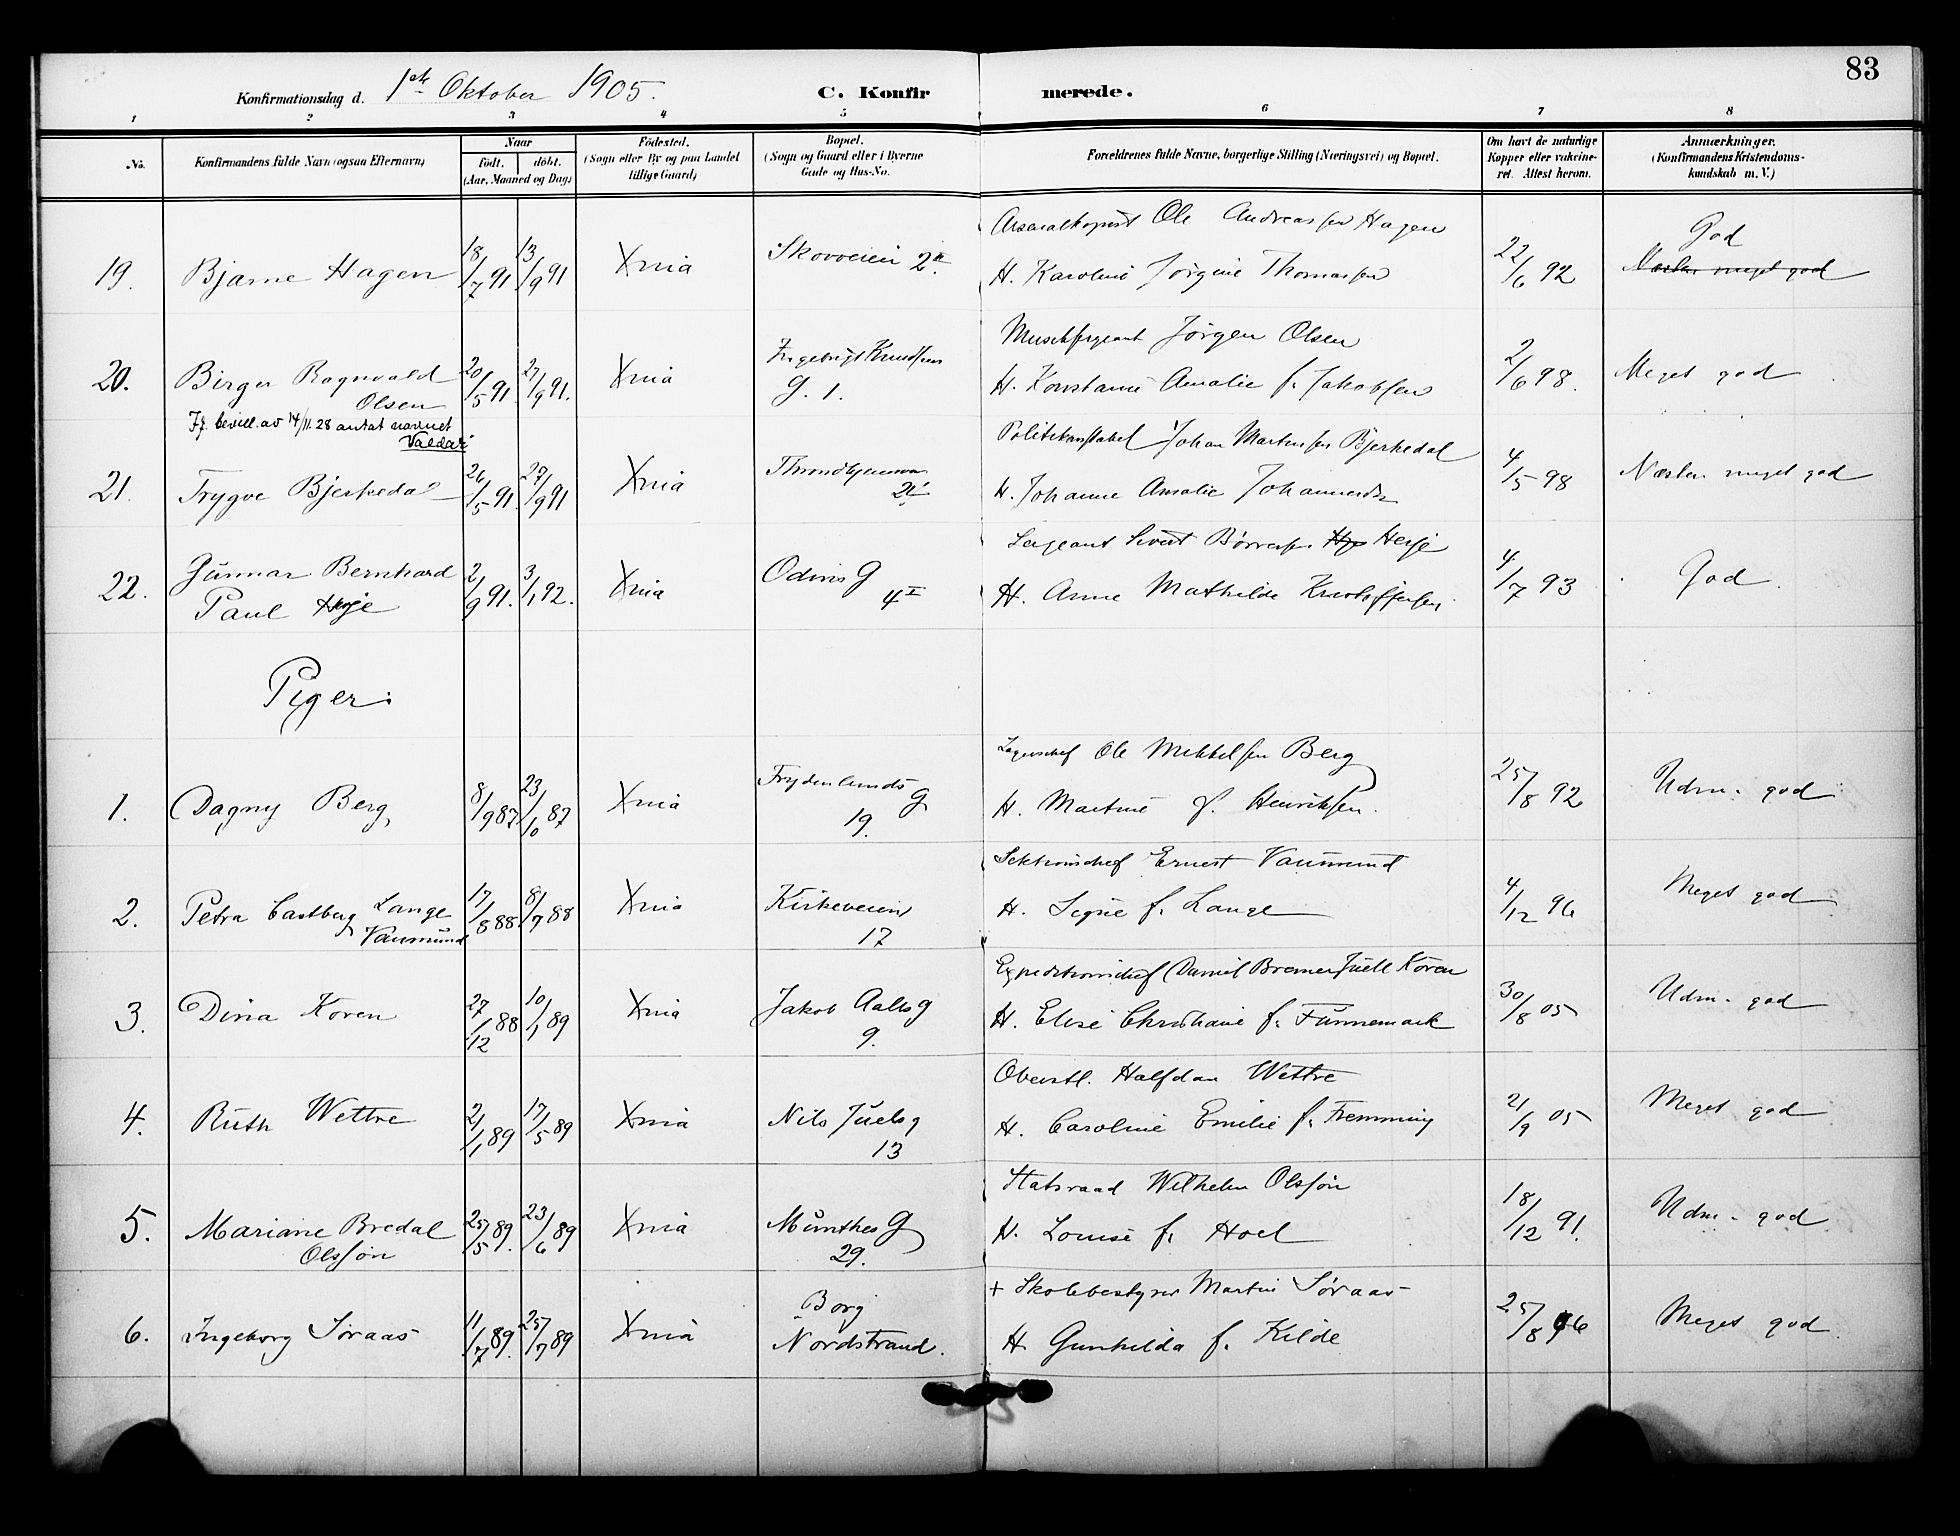 83
Konfirmationsdag d. 1ste Oktober 1905.
C. Konfirmerede.
1 2 3 4 5 6 7 8
No.
Konfirmandens fulde Navn (ogsaa Efternavn)
Naar
født. døbt.
(Aar, Maaned og Dag)
Fødested.
(Sogn eller By og paa Landet
tillige Gaard)
Bopæl.
(Sogn og Gaard eller i Byerne
Gade og Hus-No.
Forældrenes fulde Navne, borgerlige Stilling (Næringsvei) og Bopæl.
Om havt de naturlige
Kopper eller vakcine-
ret. Attest herom.
Anmærkninger.
(Konfirmandens Kristendoms-
kundskab m. V.)
19. Bjarne Hagen 18/7 91 13/9 91 Xnia Skovveien 2 II.
Ole Andreassen Hagen
H. Karoline Jørgine Thomassen
22/6 92
God
Næsten meget god
20. Birger Ragnvald
Olsen
20/5 91. 27/9 91. Xnia Ingebrigt Knudsens
G. 1.
Musiksergeant Jørgen Olsen
H. Konstance Amalie f. Jakobsen
2/6 98. Meget god
If. bevill. av 14/11.28 antat navnet
Valdar
21. Trygve Bjerkedal 26/5 91. 27/9 91 Xnia
Politikonstabel Johan Martinsen Bjerkedal
H. Johanne Amalie Johannesdr
4/5 98 Næsten meget god
22. Gunnar Bernhard
Paul Herje
2/9 91. 3/1 92. Xnia Odins G
4 I
Sergeant Sivert Børresen Herje
H. Anne Mathilde Kristoffersen
4/7 93 God.
Piger:
1. Dagny Berg 8/9 87 23/10 87 Xnia Frydenlunds G
19.
Lagerchef Ole Mikkelsen Berg
H. Martine f. Henriksen.
25/8 92 Udm. god
2. Petra Castberg Lange
Vaumund
17/3 88. 8/7 88 Xnia Kirkeveien
17
Sektionschef Ernest Vaumund
H. Signe f. Lange
4/12 96 Meget god
3. Dina Koren 27/12 88 10/1 89 Xnia Jakob Aalls g
9.
Expeditionschef Daniel Bremer Juell Koren
H. Elise Christiane f. Funnemark
30/8 05 Udm. god
4. Ruth Wettre 2/1 89 17/5 89 Xnia Nils Juels g
13
Oberstl. Halfdan Wettre
H. Caroline Emilie f. Fremming
21/9 05 Meget god
5. Mariane Bredal
Olssøn
25/5 89. 23/6 89 Xnia Munthes G
29.
Statsraad Wilhelm Olssøn
H. Louise f. Hoel
18/12 91. Udm. god
6. Ingeborg Søraas 11/7 89. 25/7 89 Xnia Borg
Nordstrand.
+ Skolebestyrer Martin Søraas
H. Gunhilda f. Kilde
25/8 96 Meget god.